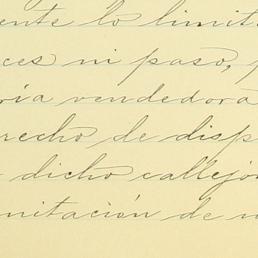 ente lo limit
ces ni paso, p
ría vendedora
recho de disp
dicho callejón
mitación de